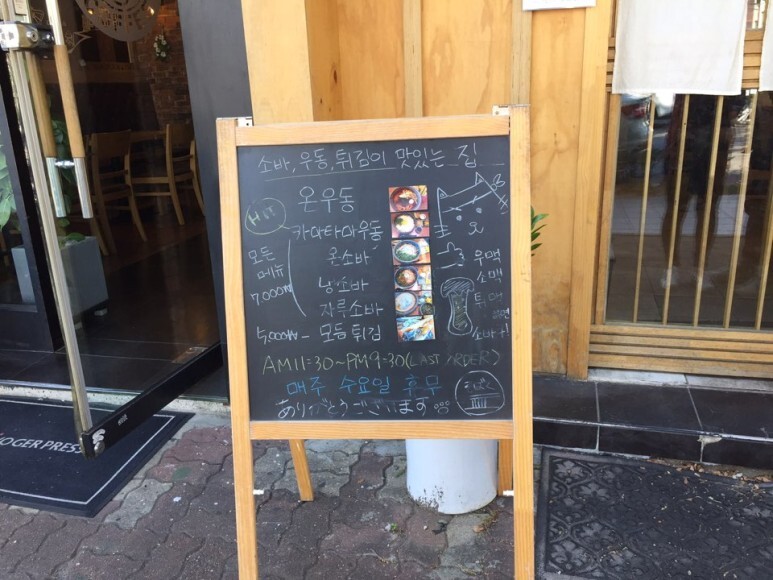 소바, 우동, 튀김이 맛있는 집
온우동
Hit
카마타마우동
모든
메뉴
7,000₩
온소바
냉소바
자루소바
5,000₩ - 모듬튀김
우맥
소맥
AM11:30~PM9:30(LAST ORDER)
매주 수요일 휴무
ありがとうございます
GER PRESS